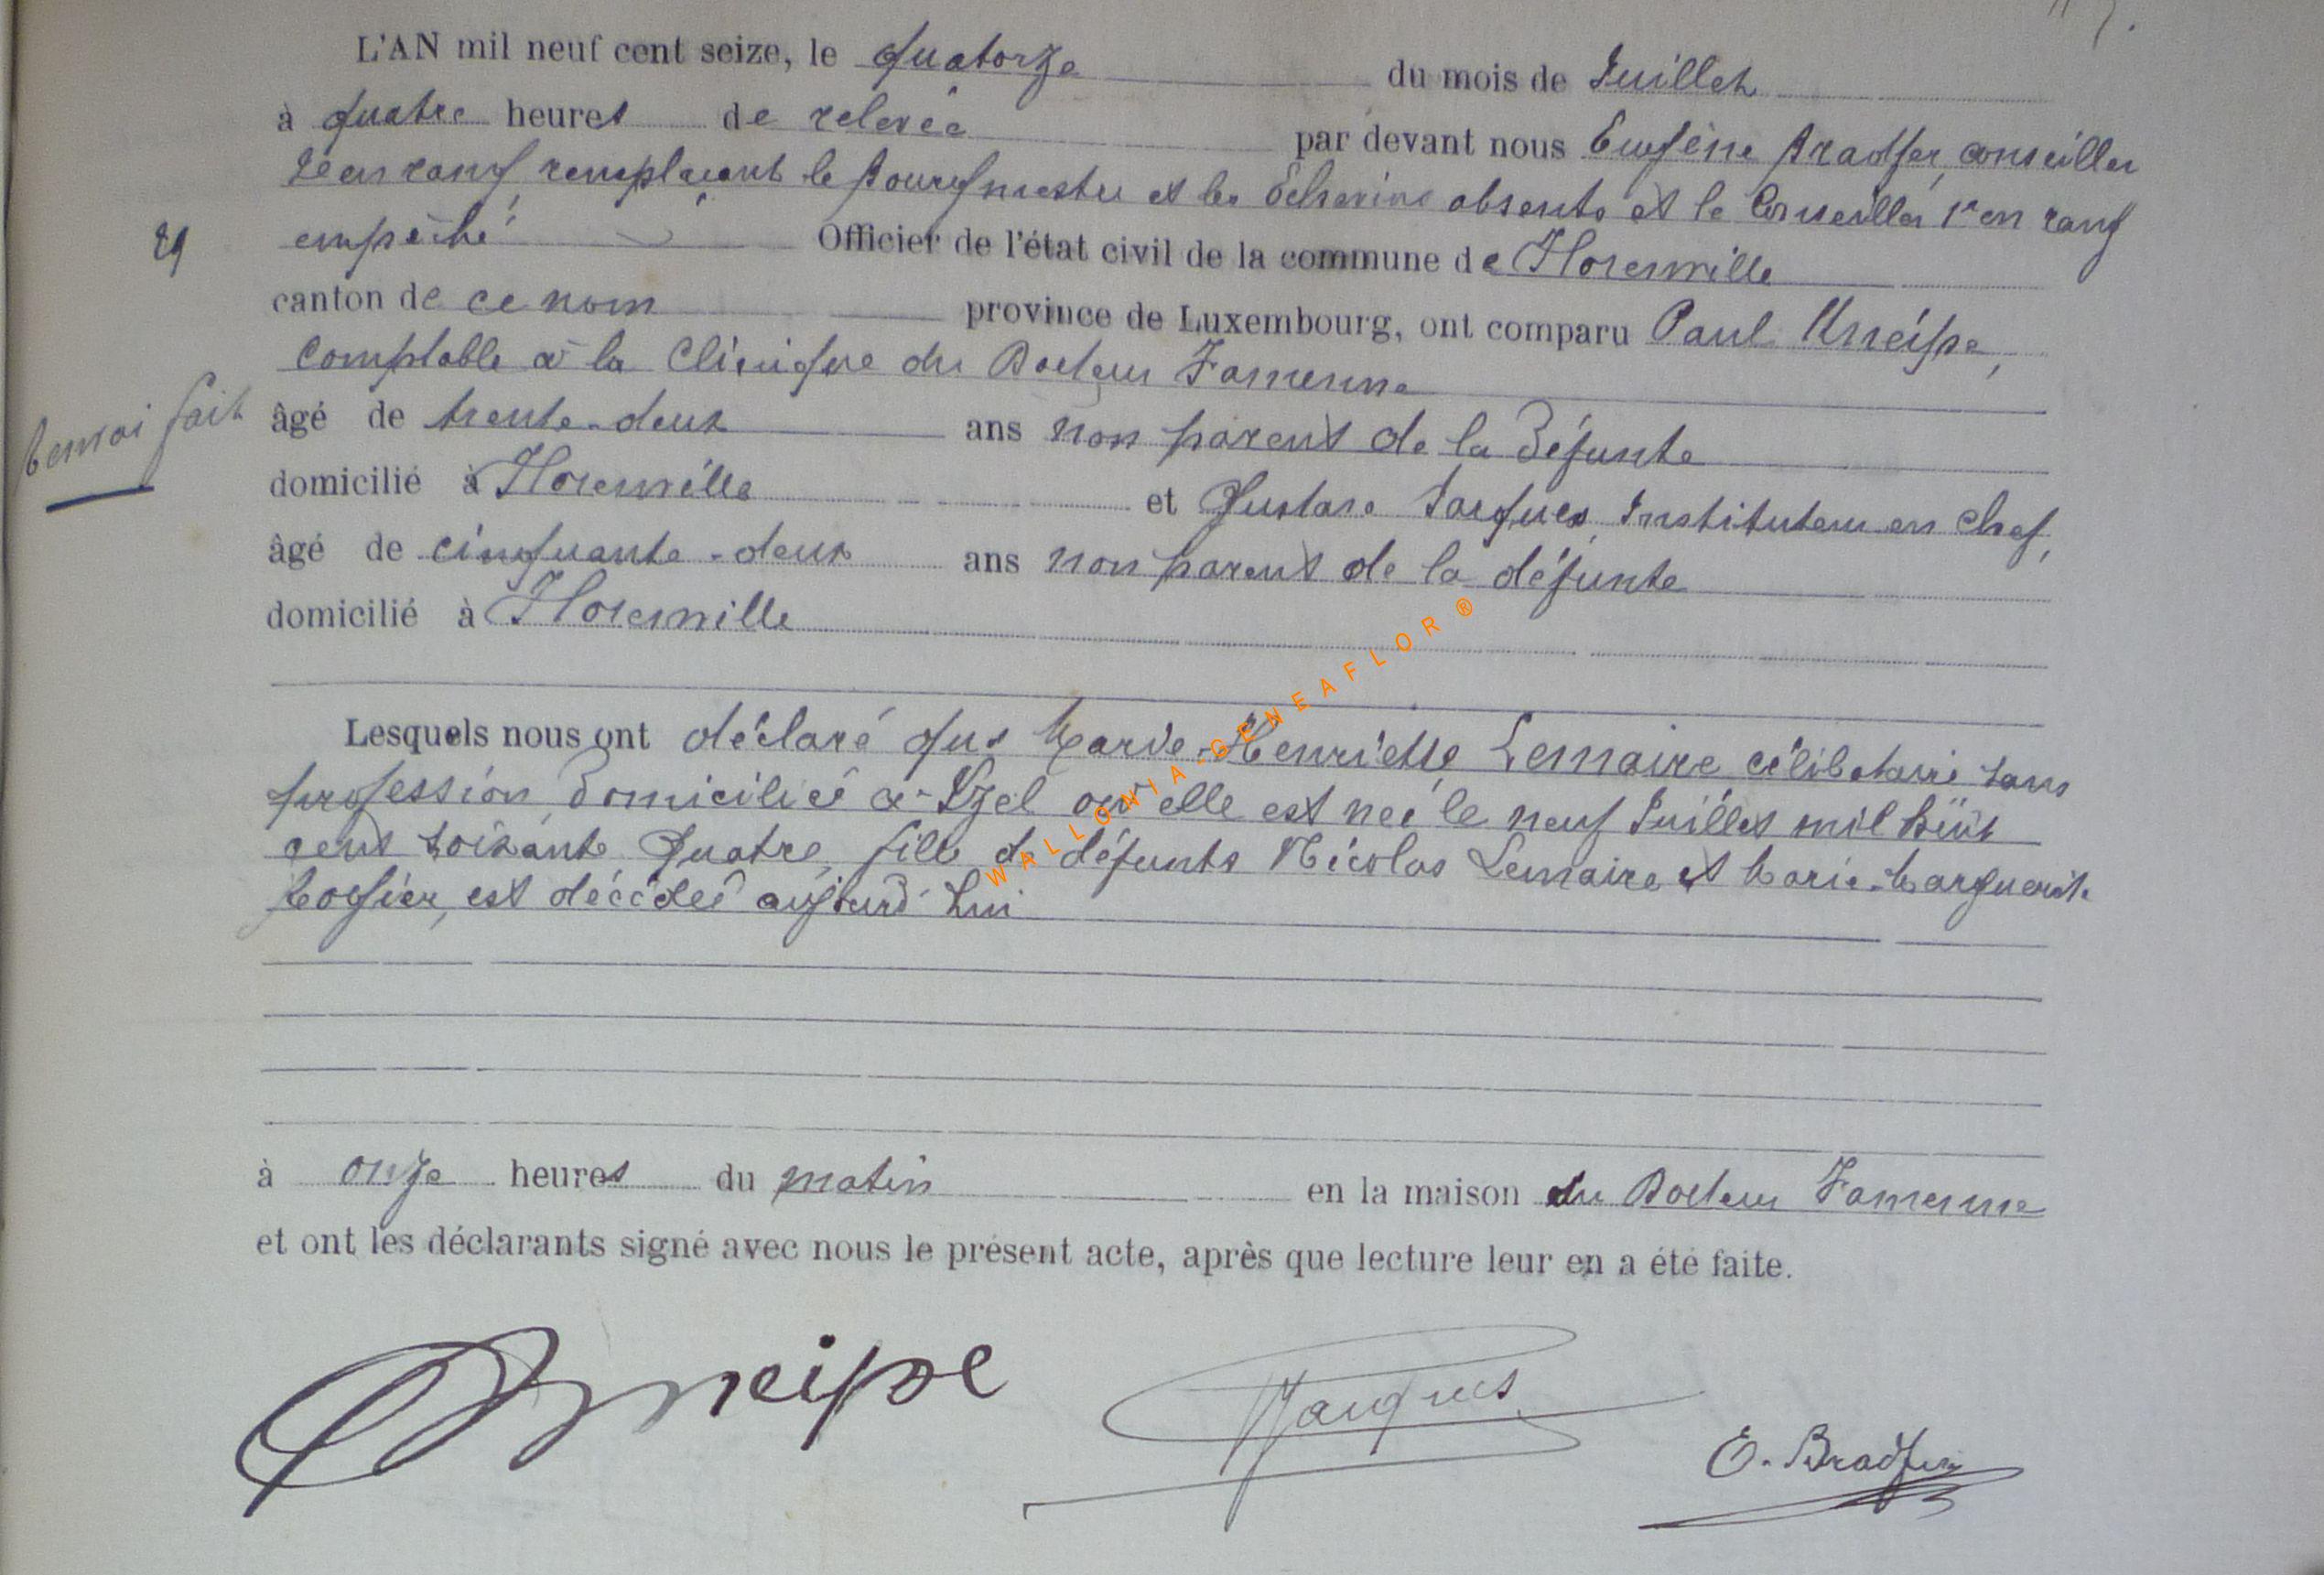 L'AN mil neuf cent seize, le quatorze du mois de Juillet
à quatre heures de relevée par devant nous Eugène Bradfer, conseiller
2e en rang, remplaçant le Bourgmestre et les Echevins absents et le Conseiller 1er en rang
29 empêché Officier de l'état civil de la commune de Florenville
canton de ce nom province de Luxembourg, ont comparu Paul Kneipe,
Comptable à la Clinique du Docteur Famenne
Renvoi fait
âgé de trente-deux ans non parent de la défunte
domicilié à Florenville et Gustave Jacques, Instituteur en chef,
âgé de cinquante-deux ans non parent de la défunte
domicilié à Florenville
Lesquels nous ont déclaré que Marie-Henriette Lemaire célibataire sans
profession, domiciliée à Izel où elle est née le neuf Juillet mil huit
cent soixante quatre, fille de défunts Nicolas Lemaire et Marie-Marguerite
est décédée aujourd'hui
WALLONIA-GENEAFLOR®
à onze heures du matin en la maison du Docteur Famenne
et ont les déclarants signé avec nous le présent acte, après que lecture leur en a été faite.
Kneipe Jacques E. Bradfer